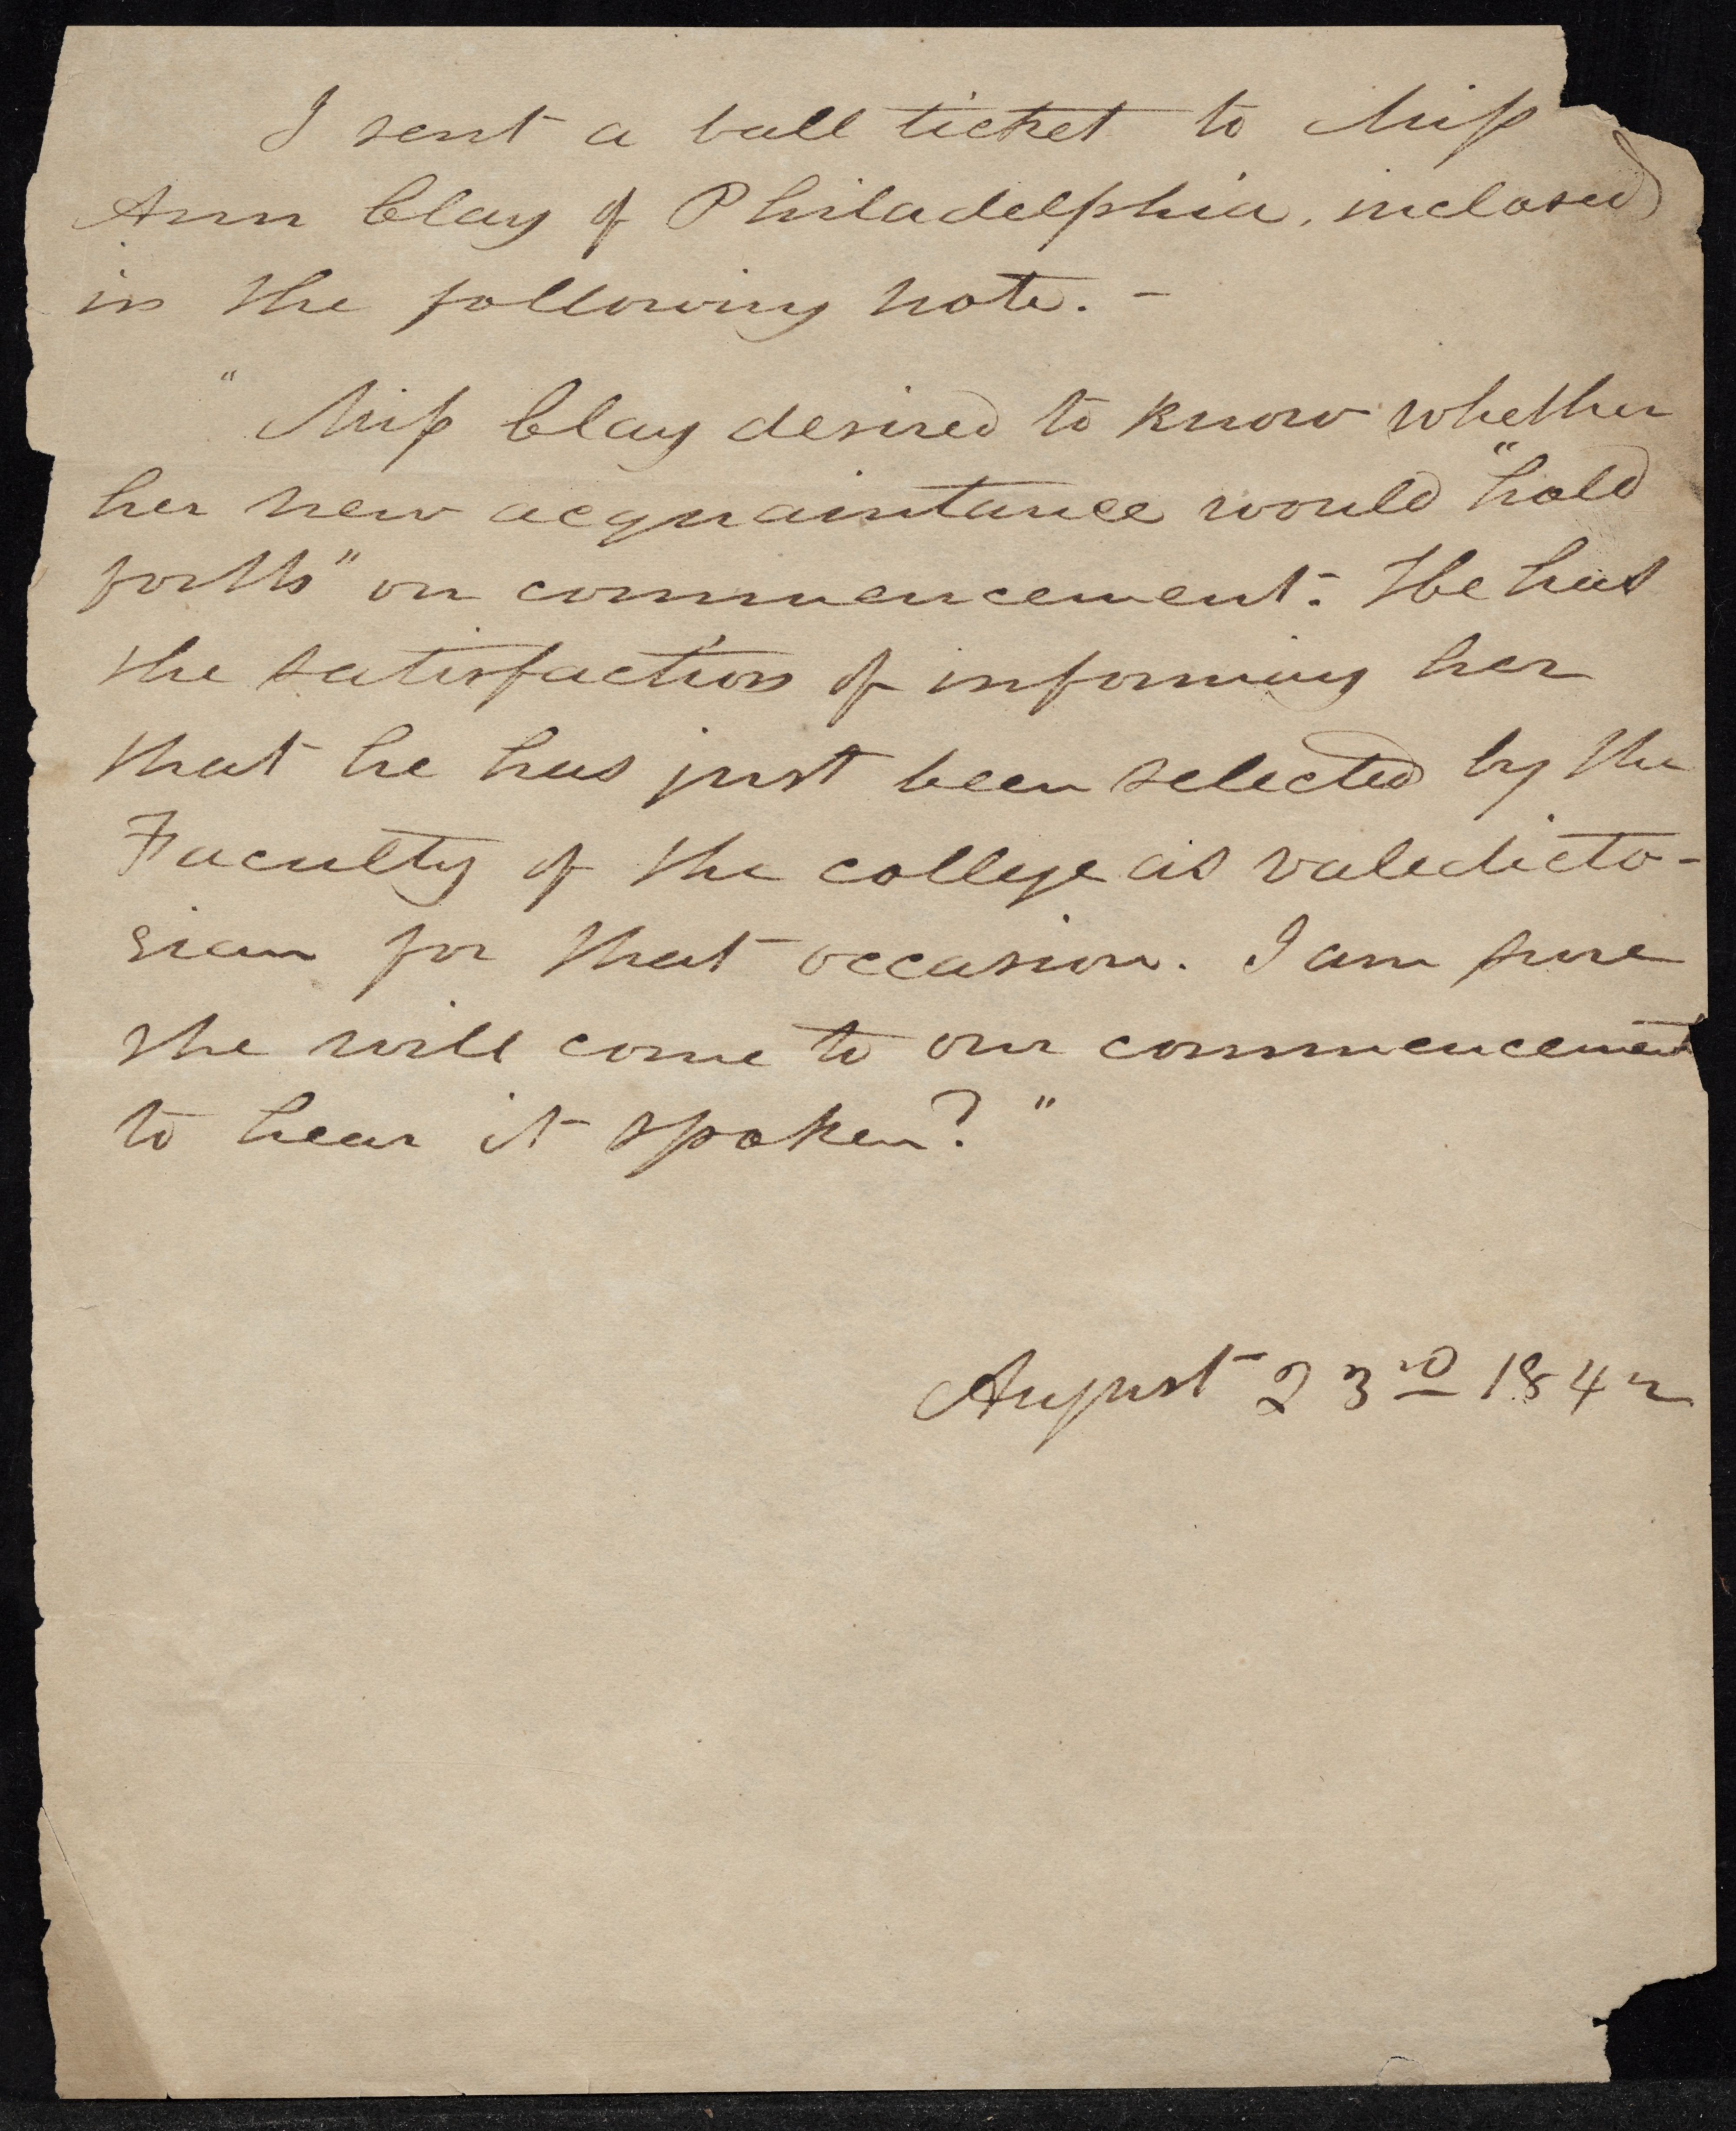 I sent a ball ticket to Miss
Ann Clay of Philadelphia, inclosed
in the following note. -
" Miss Clay desired to know whether
her new acquaintance would "hold
forth" on commencement. He has
the satisfaction of informing her
that he has just been selected by the
Faculty of the college as valedicto-
rian for that occasion. I am sure
she will come to our commencement
to hear it spoken? "
August 23rd 1842